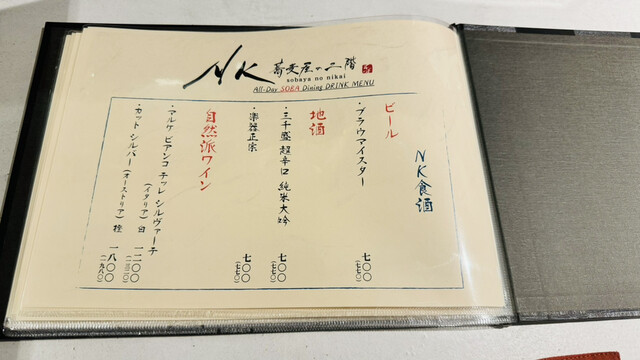 NK 蕎麦屋の二階
sobaya no nikai
All-Day SOBA Dining DRINK MENU
NK食酒
ビール
・ブラウマイスター 七〇〇
(七七〇)
地酒
・三千盛 超辛口 純米大吟 七〇〇
(七七〇)
・楽器正宗 七〇〇
(七七〇)
自然派ワイン
・マルケ ビアンコ チッレ シルヴァーチ
(イタリア) 白 一二〇〇
・カット シルバー(オーストリア) 橙 一八〇〇
(一九八〇)